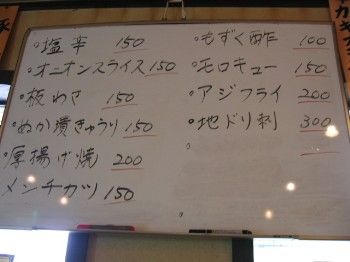 塩辛 150
オニオンスライス 150
板わさ 150
ぬか漬きゅうり 150
厚揚げ焼 200
メンチカツ 150
もずく酢 100
モロキュー 150
アジフライ 200
地ドリ刺 300